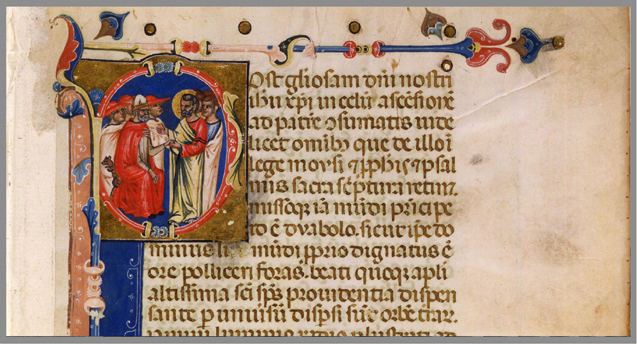 Ost gliosam dñi nostri
ihu xpi in celũ ascẽsionẽ
ad patrẽ ɔsumatis inte
licet omibꝫ que de illo ĩ
lege moysi ⁊ ꝓphis ⁊ psal
mis sacra sc̃ptura retinꝫ.
iussoqꝫ iã mũdi pñcipe
ẽ dyabolo. sicut ipe do
minus mũdi. ꝓprio dignatus ẽ
ore polliceri foras. beati quoqꝫ apli
altissima sc̃i sp̃s prouidentia dispen
sante ꝑ uniusũ disp̃si sũt orbẽ